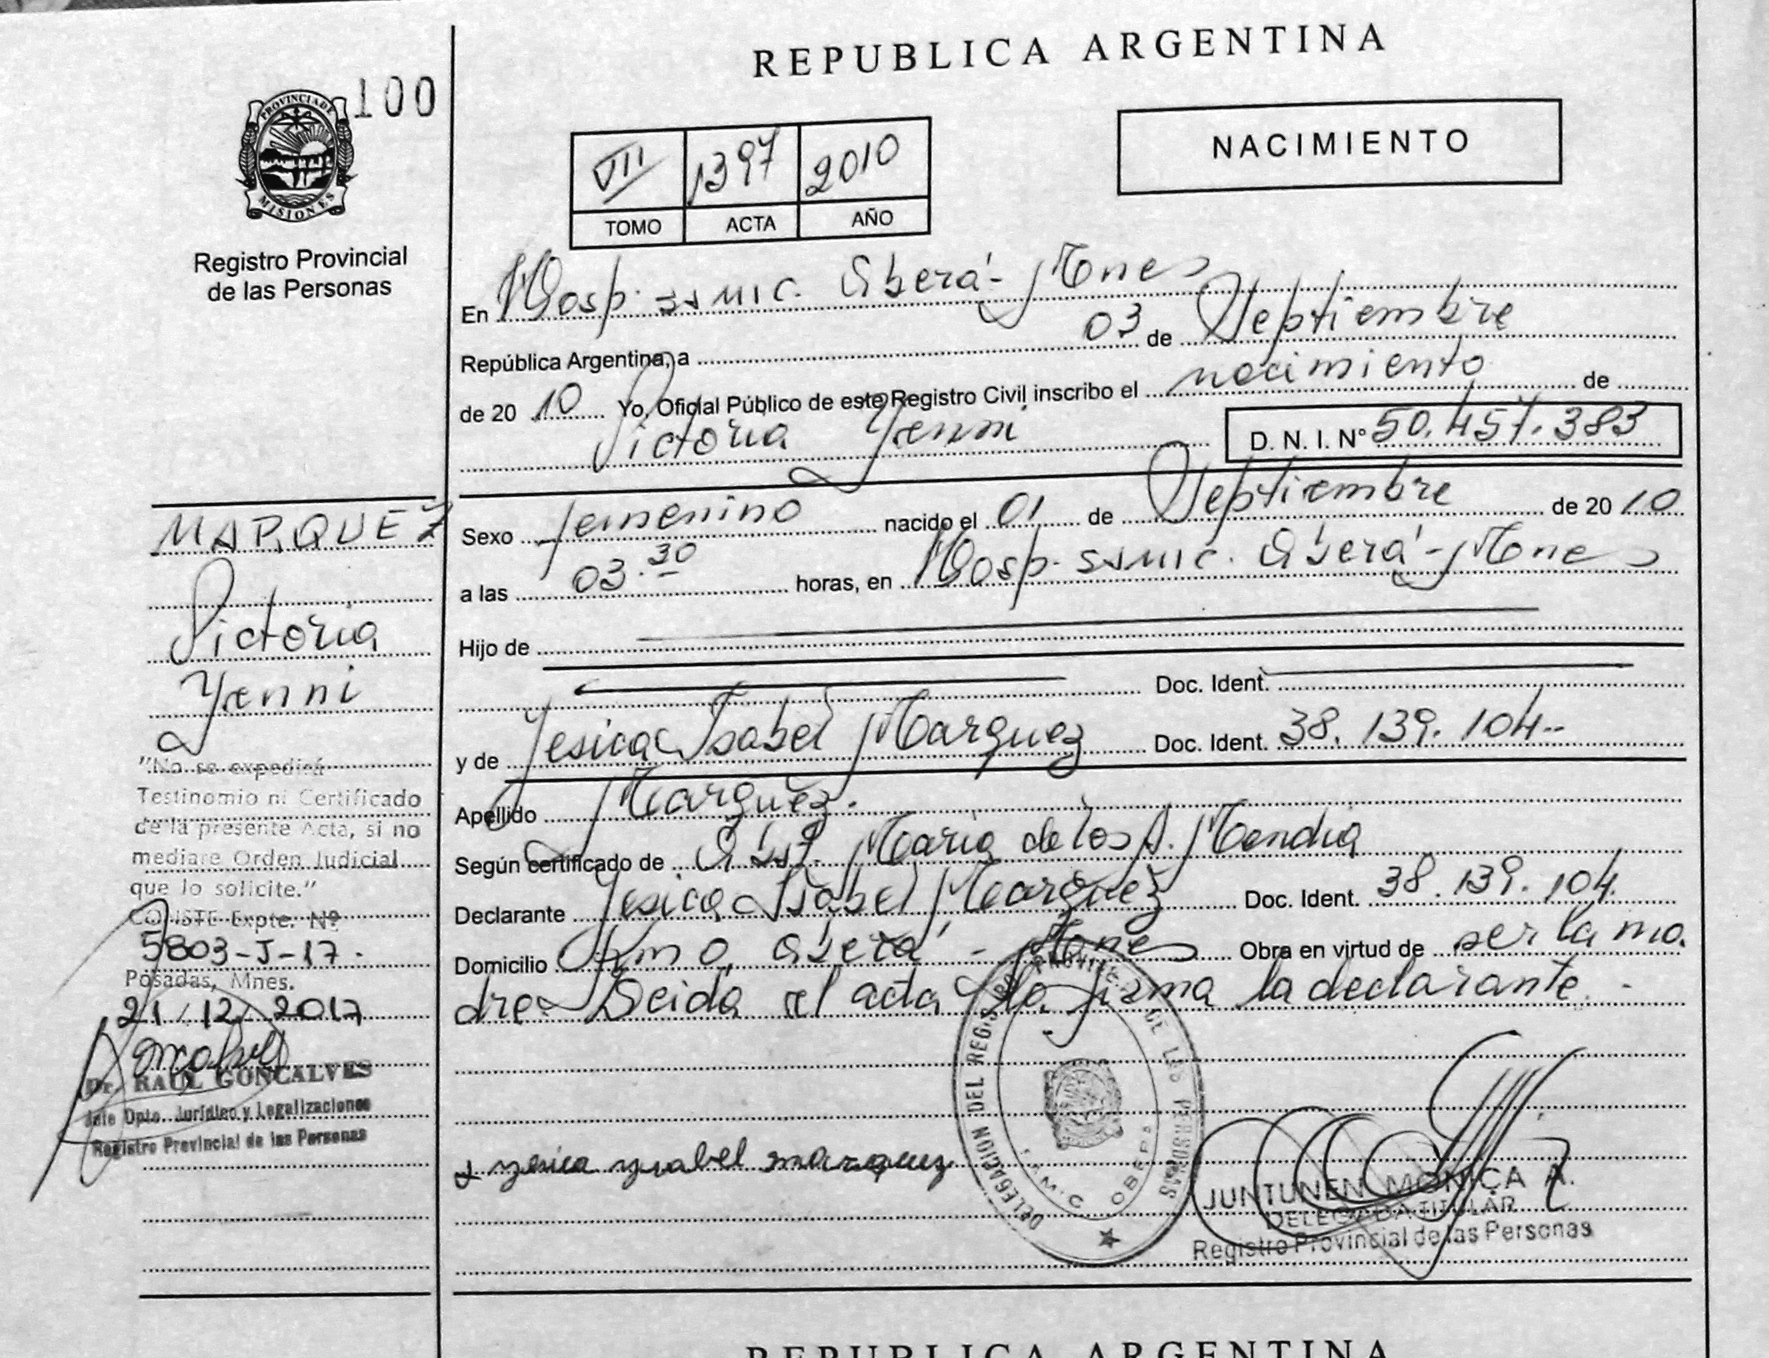 REPUBLICA ARGENTINA
100
PROVINCIA DE
MISIONES
Registro Provincial
de las Personas
VII 1397 2010
TOMO ACTA AÑO
NACIMIENTO
En Hosp. SSMIC. Oberá - Mnes
República Argentina, a 03 de Septiembre
de 2010 Yo, Oficial Público de este Registro Civil inscribo el nacimiento de
Victoria Yenni D. N. I. Nº 50.457.383
Sexo femenino nacido el 01 de Septiembre de 2010
a las 03.30 horas, en Hosp. SSMIC. Oberá - Mnes
Hijo de
Doc. Ident.
y de Yesica Isabel Marquez Doc. Ident. 38.139.104--
Apellido Marquez.
Según certificado de Obst. Maria de los A. Mendia
Declarante Yesica Isabel Marquez Doc. Ident. 38.139.104
Domicilio Oberá - Mnes Obra en virtud de ser la ma.
dre Leida el acta la firma la declarante. -
MARQUEZ
Victoria
Yenni
"No se expedirá
Testinomio ni Certificado
de la presente Acta, si no
mediare Orden Judicial
que lo solicite."
CONSTE Expte. Nº
5803-J-17.
Posadas, Mnes.
21/12/2017
Dr. RAUL GONCALVES
Jefe Dpto. Jurídico y Legalizaciones
Registro Provincial de las Personas
yesica ysabel marquez
DELEGACION DEL REGISTRO PROVINC. DE LAS PERSONAS
OBERA
JUNTUNEN MONICA A.
DELEGADA TITULAR
Registro Provincial de las Personas
REPUBLICA ARGENTINA